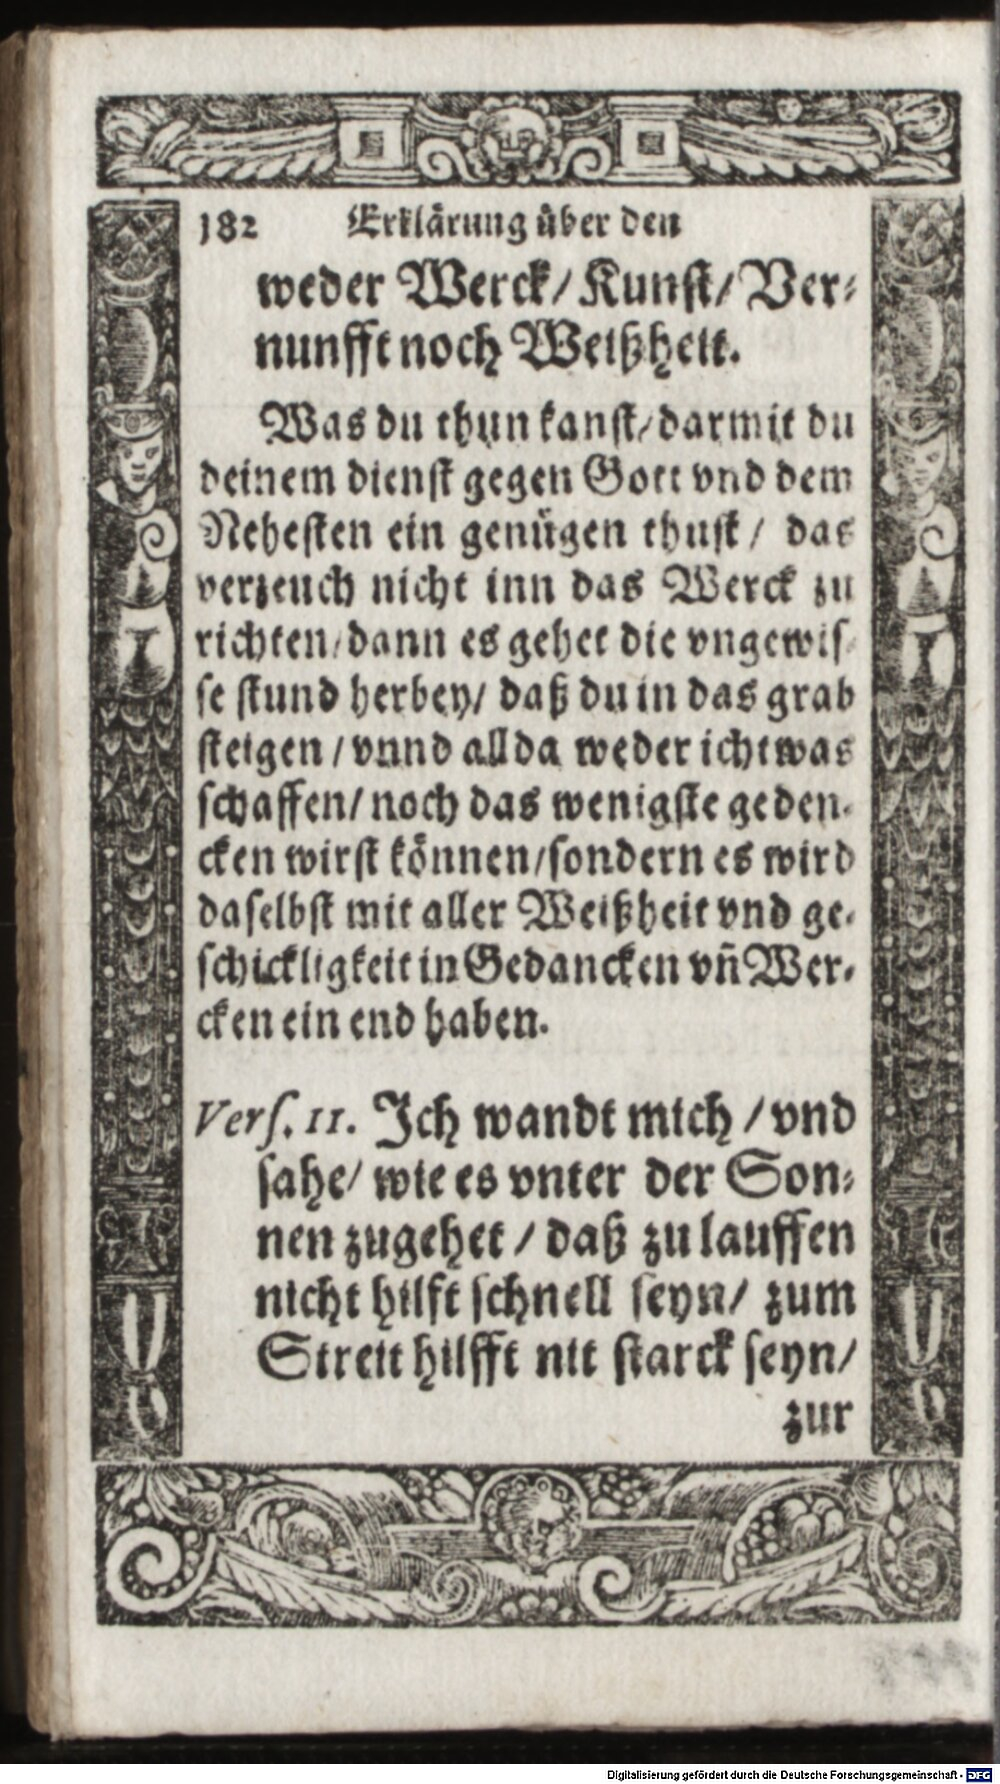 182 Erklärung über den
weder Werck/ Kunst/ Ver-
nunfft noch Weißheit.
Was du thun kanst/ darmit du
deinem dienst gegen Gott vnd dem
Nehesten ein genügen thust/ das
verzeuch nicht inn das Werck zu
richten/ dann es gehet die vngewis-
se stund herbey/ daß du in das grab
steigen/ vnnd allda weder ichtwas
schaffen/ noch das wenigste geden-
cken wirst können/ sondern es wird
daselbst mit aller Weißheit vnd ge-
schickligkeit in Gedancken vñ Wer-
cken ein end haben.
Vers. 11. Ich wandt mich/ vnd
sahe/ wie es vnter der Son-
nen zugehet/ daß zu lauffen
nicht hilft schnell seyn/ zum
Streit hilfft nit starck seyn/
zur
Digitalisierung gefördert durch die Deutsche Forschungsgemeinschaft - DFG